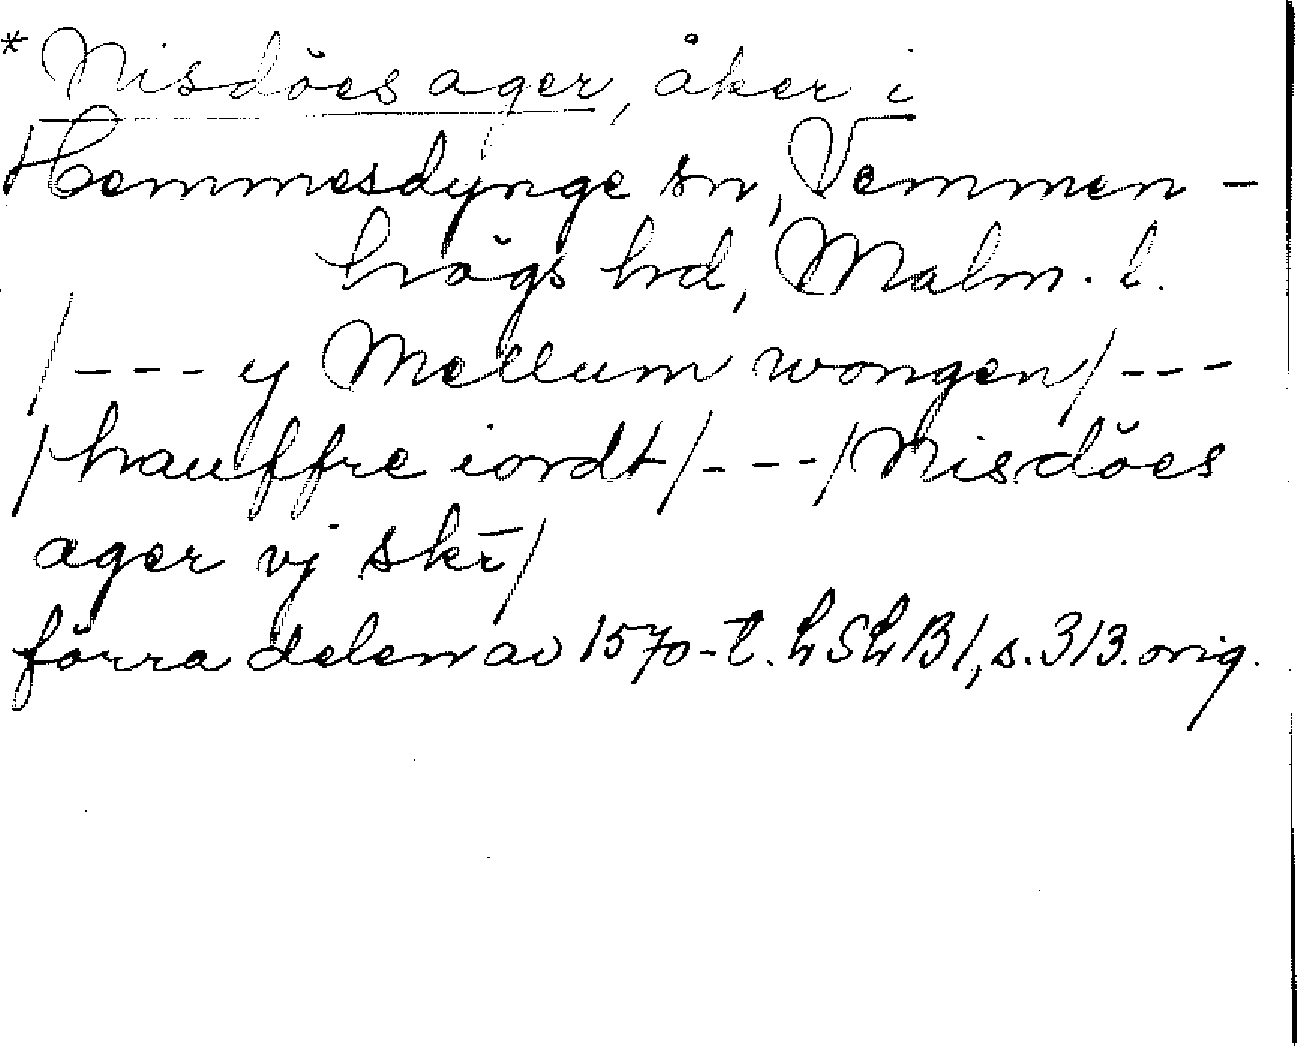 * Nisdŏes ager, åker i
Hemmesdynge sn, Vemmen-
högs hd, Malm. l.
/--- y Mellum wongen/---
/hauffre iordt/---/Nisdŏes
ager vj skr̄/
förra delen av 1570-t. LSLB1, s. 313. orig.